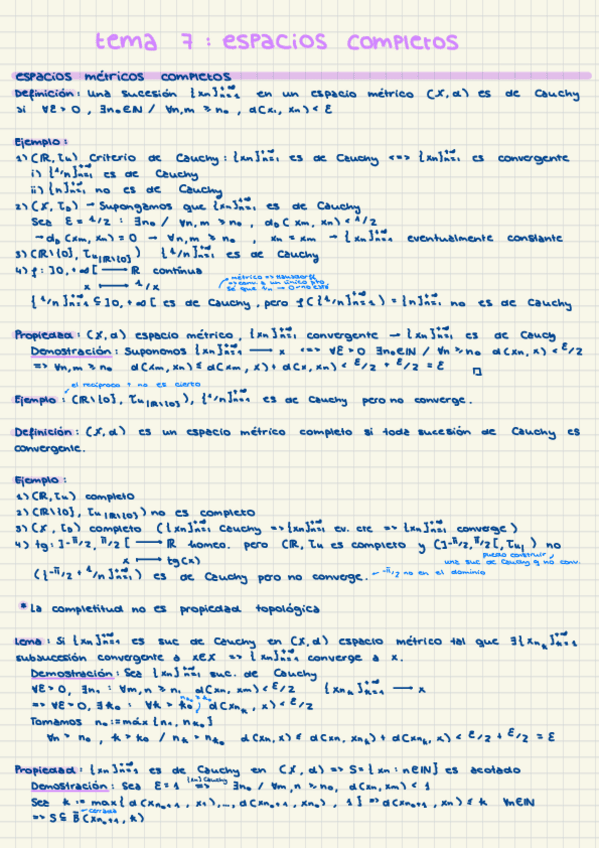 tema 7: espacios completos
espacios métricos completos
Definición: una sucesión {xn}ₙ₌₁^+∞ en un espacio métrico (X,d) es de Cauchy
si ∀ε>0, ∃n₀∈ℕ / ∀n,m ≥ n₀, d(xₙ, xₘ) < ε
Ejemplo:
1) (ℝ, τᵤ) Criterio de Cauchy: {xn}ₙ₌₁^+∞ es de Cauchy <=> {xn}ₙ₌₁^+∞ es convergente
i) {1/n}ₙ₌₁^+∞ es de Cauchy
ii) {n}ₙ₌₁^+∞ no es de Cauchy
2) (X, τ_D) → Supongamos que {xn}ₙ₌₁^+∞ es de Cauchy
Sea ε = 1/2 : ∃n₀ / ∀n,m ≥ n₀, d_D(xₘ, xₙ) < 1/2
→ d_D(xₘ, xₙ) = 0 → ∀n,m ≥ n₀, xₙ = xₘ → {xn}ₙ₌₁^+∞ eventualmente constante
3) (ℝ\{0}, τᵤ|ℝ\{0}) {1/n}ₙ₌₁^+∞ es de Cauchy
4) f: ]0,+∞[ → ℝ continua
métrico => Hausdorff
=> conv. a un único pto.
x ↦ 1/x
{1/n}ₙ₌₁^+∞ ⊆ ]0,+∞[ es de Cauchy, pero f({1/n}ₙ₌₁^+∞) = {n}ₙ₌₁^+∞ no es de Cauchy
Propiedad: (X,d) espacio métrico, {xn}ₙ₌₁^+∞ convergente → {xn}ₙ₌₁^+∞ es de Cauchy
Demostración: Suponemos {xn}ₙ₌₁^+∞ → x <=> ∀ε>0 ∃n₀∈ℕ / ∀n ≥ n₀ d(xₙ, x) < ε/2
=> ∀n,m ≥ n₀ d(xₘ, xₙ) ≤ d(xₘ, x) + d(x, xₙ) < ε/2 + ε/2 = ε □
el recíproco no es cierto
Ejemplo: (ℝ\{0}, τᵤ|ℝ\{0}), {1/n}ₙ₌₁^+∞ es de Cauchy pero no converge.
Definición: (X,d) es un espacio métrico completo si toda sucesión de Cauchy es
convergente.
Ejemplo:
1) (ℝ, τᵤ) completo
2) (ℝ\{0}, τᵤ|ℝ\{0}) no es completo
3) (X, τ_D) completo ({xn}ₙ₌₁^+∞ Cauchy => {xn}ₙ₌₁^+∞ ev. cte => {xn}ₙ₌₁^+∞ converge)
4) tg: ]-π/2, π/2[ → ℝ homeo. pero (ℝ, τᵤ es completo y (]-π/2, π/2[, τᵤ|) no
x ↦ tg(x)
puedo construir
una suc de Cauchy q no conv.
({-π/2 + 1/n}ₙ₌₁^+∞) es de Cauchy pero no converge. ← -π/2 no en el dominio
* La completitud no es propiedad topológica
Lema: Si {xn}ₙ₌₁^+∞ es suc de Cauchy en (X,d) espacio métrico tal que ∃{xnₖ}ₖ₌₁^+∞
subsucesión convergente a x∈X => {xn}ₙ₌₁^+∞ converge a x.
Demostración: Sea {xn}ₙ₌₁^+∞ suc. de Cauchy
∀ε>0, ∃n₁ : ∀m,n ≥ n₁ d(xₙ, xₘ) < ε/2 {xnₖ}ₖ₌₁^+∞ → x
=> ∀ε>0, ∃k₀ : ∀k > k₀, d(xnₖ, x) < ε/2
Tomamos n₀ := máx {n₁, nₖ₀}
∀n > n₀, k > k₀ / nₖ > nₖ₀ d(xₙ, x) ≤ d(xₙ, xnₖ) + d(xnₖ, x) < ε/2 + ε/2 = ε
Propiedad: {xn}ₙ₌₁^+∞ es de Cauchy en (X,d) => S = {xn : n∈ℕ} es acotado
{xn} Cauchy
Demostración: Sea ε = 1 => ∃n₀ / ∀m,n ≥ n₀, d(xₙ, xₘ) < 1
Sea k := max{d(xₙ₀₊₁, x₁),..., d(xₙ₀₊₁, xₙ₀), 1} => d(xₙ₀₊₁, xₙ) ≤ k ∀n∈ℕ
cerrada
=> S ⊆ B̄(xₙ₀₊₁, k)